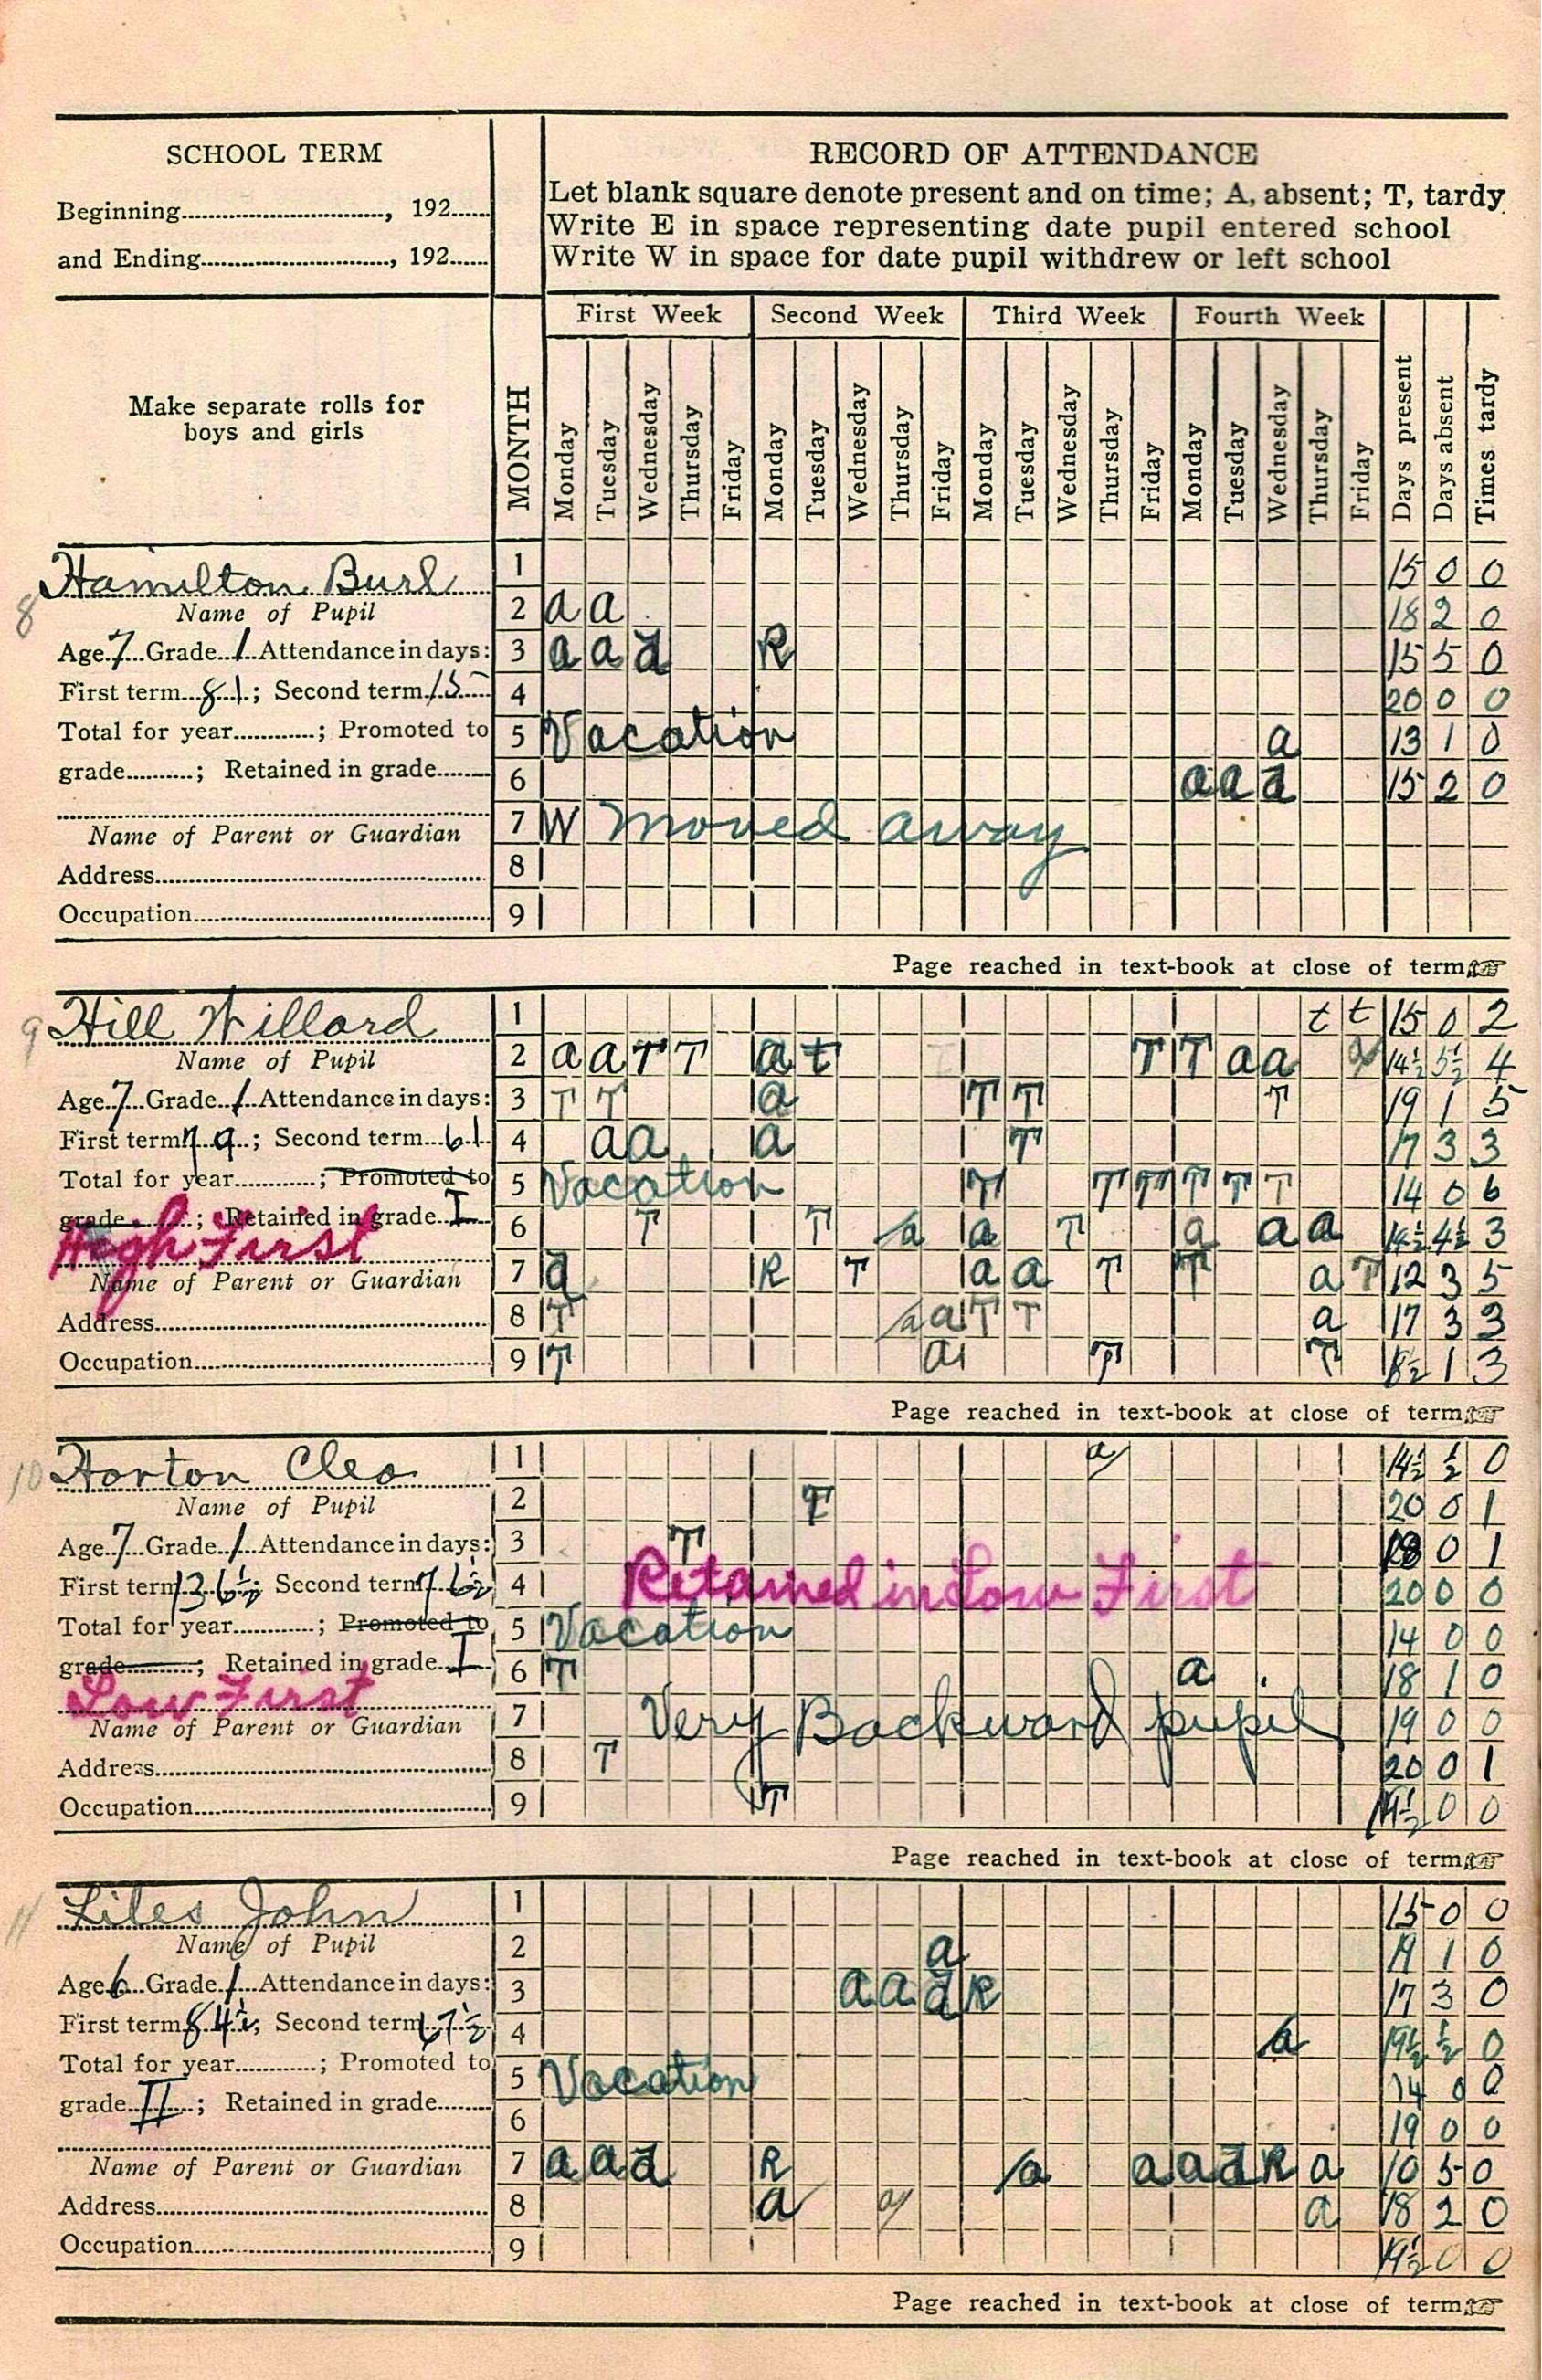 SCHOOL TERM
Beginning............................, 192......
and Ending............................, 192......
Make separate rolls for
boys and girls
MONTH
RECORD OF ATTENDANCE
Let blank square denote present and on time; A, absent; T, tardy
Write E in space representing date pupil entered school
Write W in space for date pupil withdrew or left school
First Week Second Week Third Week Fourth Week
Monday Tuesday Wednesday Thursday Friday Monday Tuesday Wednesday Thursday Friday Monday Tuesday Wednesday Thursday Friday Monday Tuesday Wednesday Thursday Friday Days present Days absent Times tardy
8 Hamilton Burl
Name of Pupil
Age 7 Grade 1 Attendance in days:
First term 81; Second term 15
Total for year............; Promoted to
grade..........; Retained in grade........
Name of Parent or Guardian
Address
Occupation
1 15 0 0
2 a a 18 2 0
3 a a a R 15 5 0
4 20 0 0
5 Vacation a 13 1 0
6 a a a 15 2 0
7 W moved away
8
9
Page reached in text-book at close of term
9 Hill Willard
Name of Pupil
Age 7 Grade 1 Attendance in days:
First term 79; Second term 61
Total for year............; Promoted to
grade..........; Retained in grade I
High First
Name of Parent or Guardian
Address
Occupation
1 t t 15 0 2
2 a a T T a t T T a a a 14½ 5½ 4
3 T T a T T T 19 1 5
4 a a a T 17 3 3
5 Vacation T T T T T T 14 0 6
6 T T a a T a a a 14½ 4½ 3
7 a R T a a T T a T 12 3 5
8 T a a T T a 17 3 3
9 T a T T 1 3
Page reached in text-book at close of term
10 Horton Cleo
Name of Pupil
Age 7 Grade 1 Attendance in days:
First term 136½; Second term 76½
Total for year............; Promoted to
grade..........; Retained in grade I
Low First
Name of Parent or Guardian
Address
Occupation
1 a 14½ ½ 0
2 T 20 0 1
3 T 0 1
4 Retained in Low First 20 0 0
5 Vacation 14 0 0
6 T a 18 1 0
7 Very Backward pupil 19 0 0
8 T 20 0 1
9 T 19½ 0 0
Page reached in text-book at close of term
11 Liles John
Name of Pupil
Age 6 Grade 1 Attendance in days:
First term 84½; Second term 67½
Total for year............; Promoted to
grade II; Retained in grade........
Name of Parent or Guardian
Address
Occupation
1 15 0 0
2 a 19 1 0
3 a a a R 17 3 0
4 a 19½ ½ 0
5 Vacation 14 0 0
6 19 0 0
7 a a a R a a a a R a 10 5 0
8 a a a 18 2 0
9 19½ 0 0
Page reached in text-book at close of term